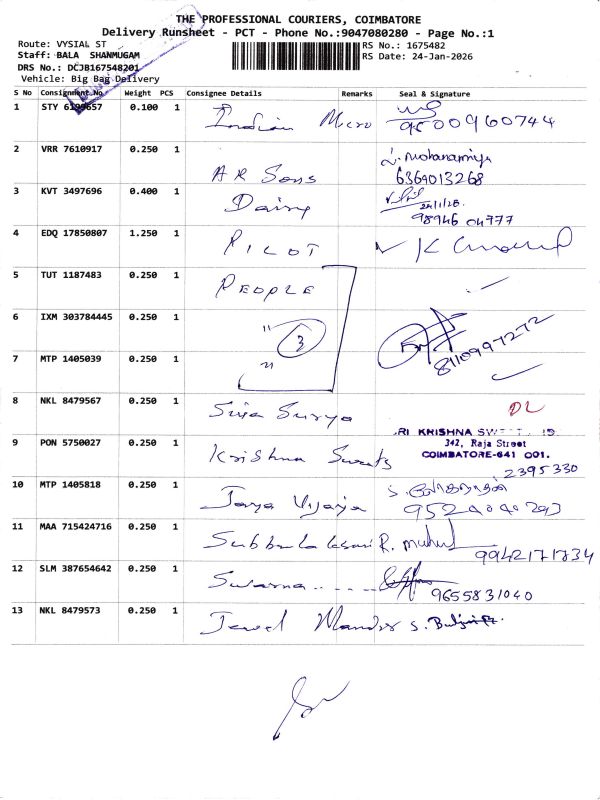 THE PROFESSIONAL COURIERS, COIMBATORE
Delivery Runsheet - PCT - Phone No.:9047080280 - Page No.:1
Route: VYSIAL ST
RS No.: 1675482
Staff: BALA SHANMUGAM
RS Date: 24-Jan-2026
DRS No.: DCJB167548201
Vehicle: Big Bag Delivery
S No Consignment No Weight PCS Consignee Details Remarks Seal & Signature
1 STY 6199657 0.100 1 Indian Micro 9500960744
2 VRR 7610917 0.250 1 AR Sons
6369013268
3 KVT 3497696 0.400 1 Daisy 24/1/26
98946 04777
4 EDQ 17850807 1.250 1 PILOT
5 TUT 1187483 0.250 1 PEOPLE
6 IXM 303784445 0.250 1 " 3 8110997272
7 MTP 1405039 0.250 1 "
8 NKL 8479567 0.250 1 Siva Surya DL
9 PON 5750027 0.250 1 Krishna Sweets
RI KRISHNA
342, Raja Street
COIMBATORE-641 001.
2395330
10 MTP 1405818 0.250 1 Jaya Vijaya
11 MAA 715424716 0.250 1 9942171734
12 SLM 387654642 0.250 1 Swarna 9655831040
13 NKL 8479573 0.250 1 Jewel